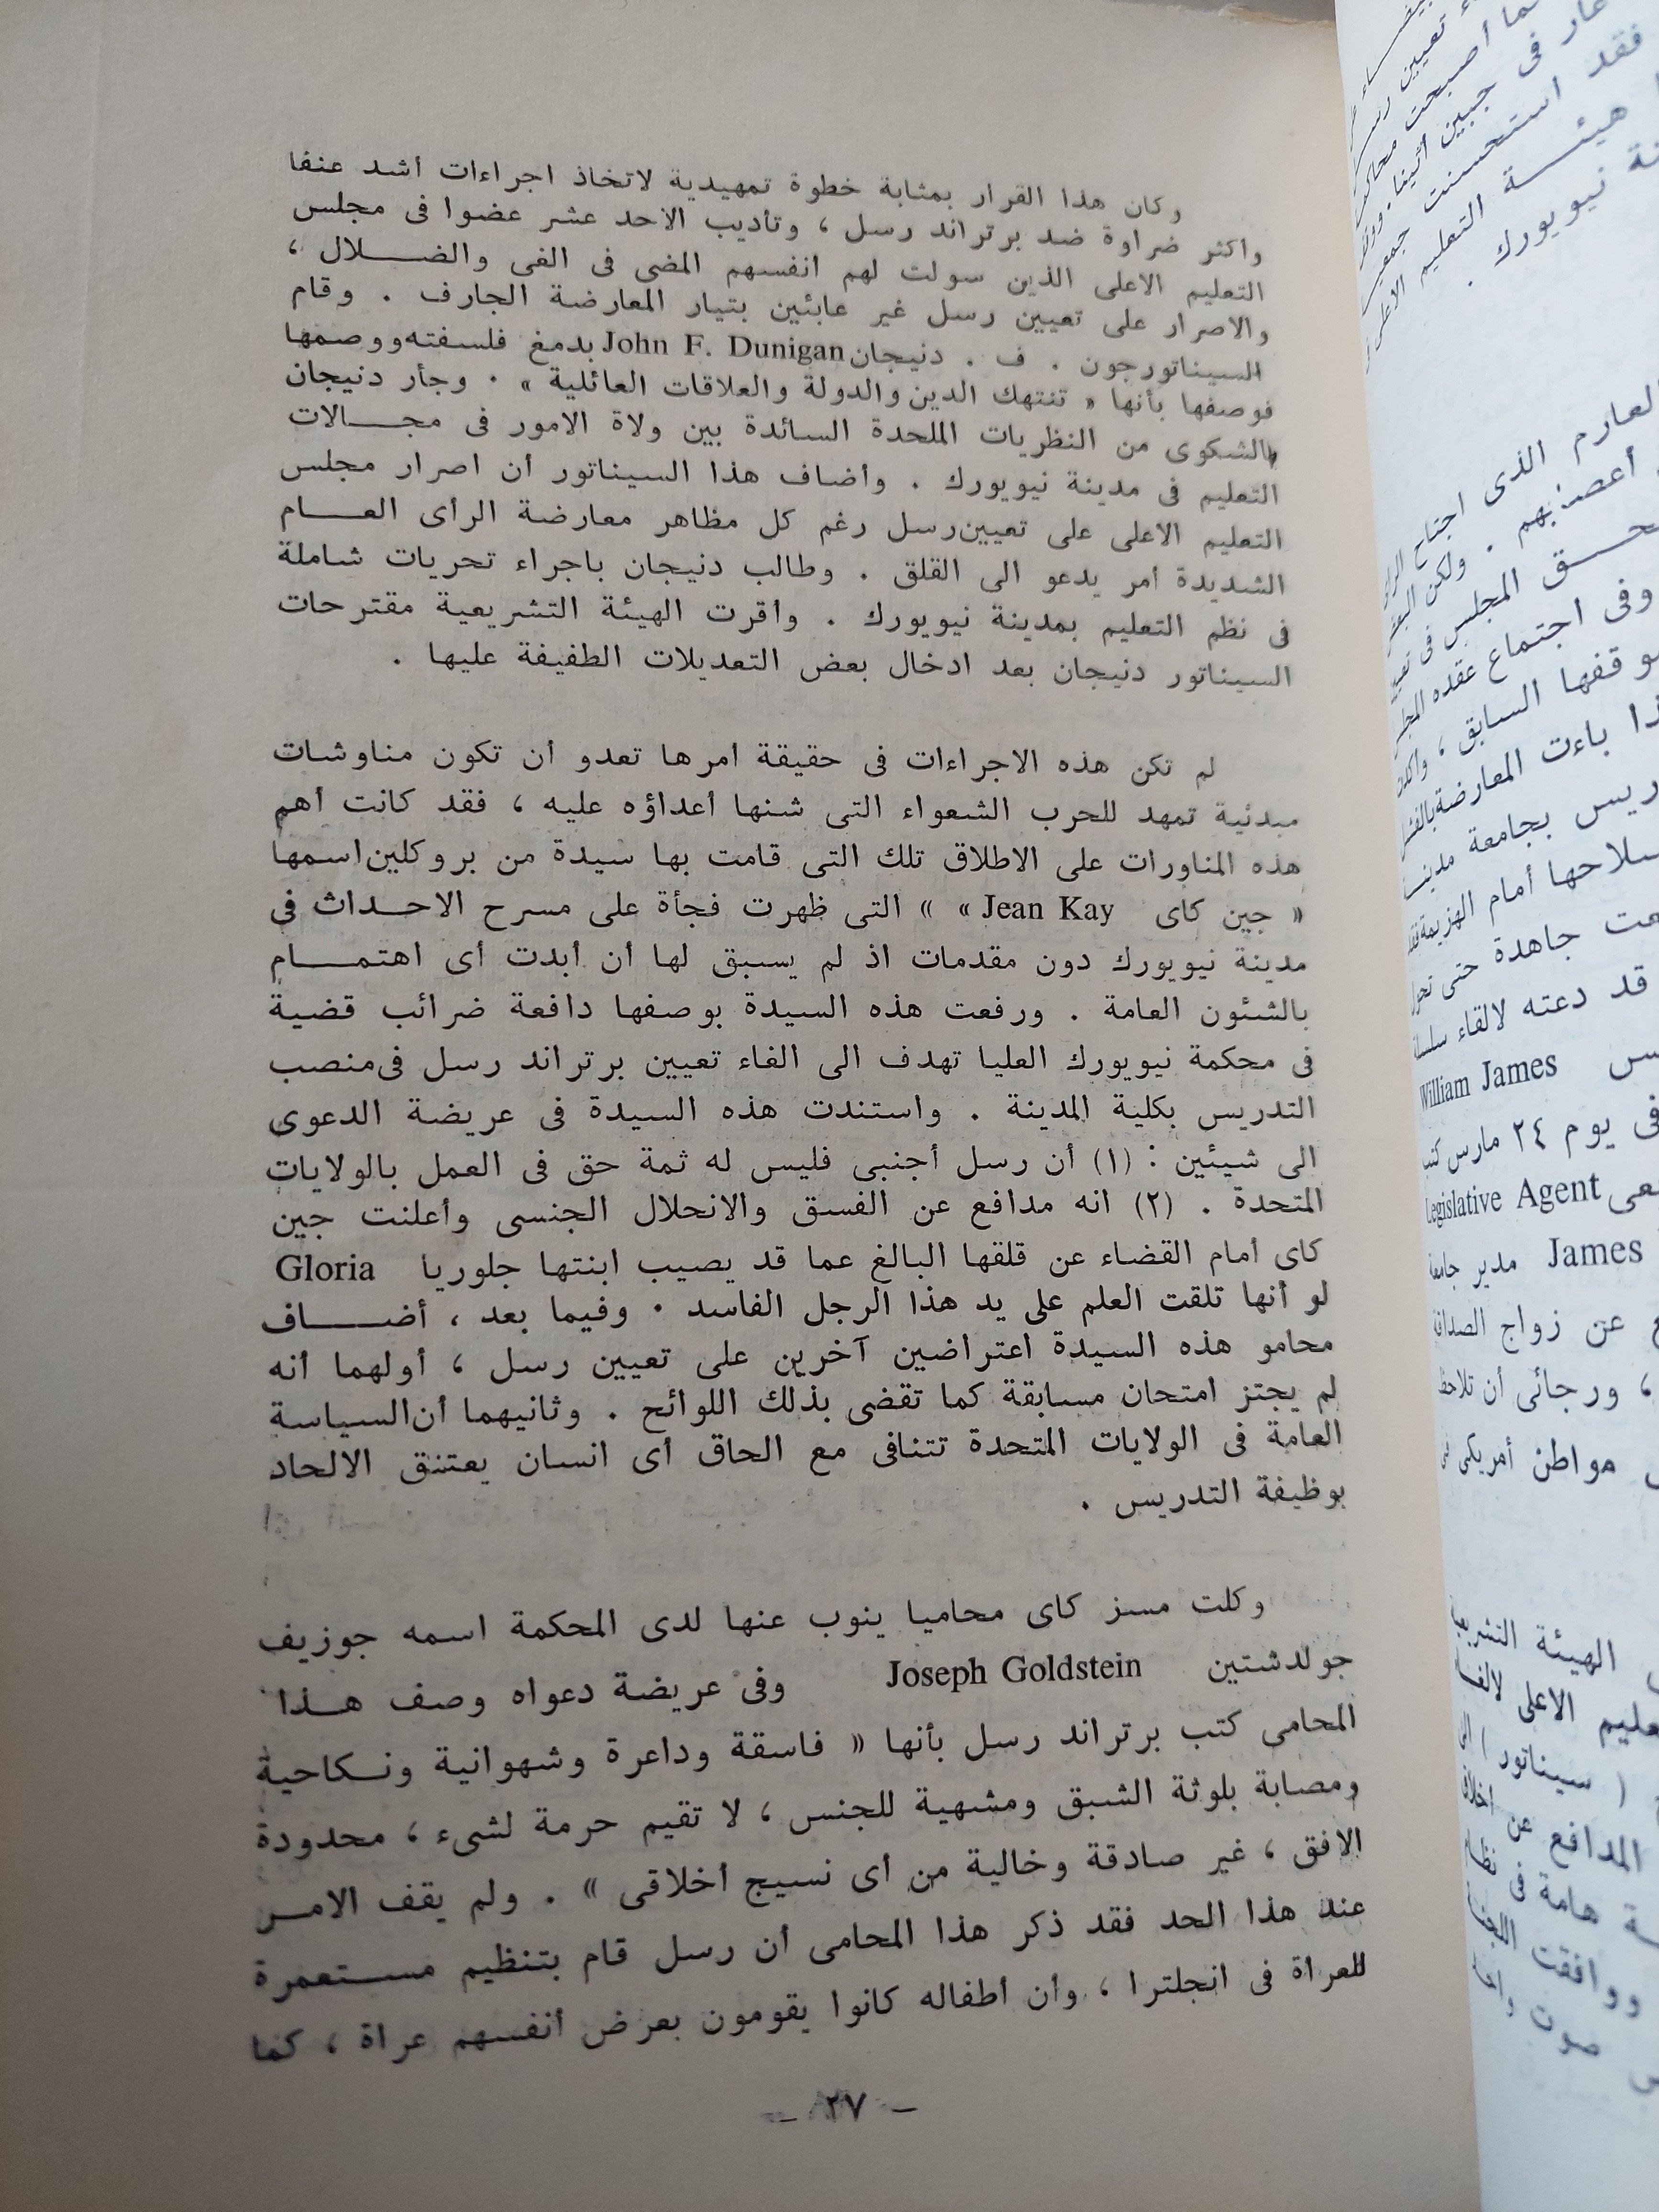 وكان هذا القرار بمثابة خطوة تمهيدية لاتخاذ اجراءات أشد عنفا
واكثر ضراوة ضد برتراند رسل ، وتأديب الاحد عشر عضوا فى مجلس
التعليم الاعلى الذين سولت لهم انفسهم المضى فى الغى والضــلال ،
والاصرار على تعيين رسل غير عابئين بتيار المعارضة الجارف . وقام
السيناتورجون . ف . دنيجان John F. Dunigan بدمغ فلسفته ووصمها
فوصفها بأنها « تنتهك الدين والدولة والعلاقات العائلية » . وجأر دنيجان
بالشكوى من النظريات الملحدة السائدة بين ولاة الامور فى مجــالات
التعليم فى مدينة نيويورك . وأضاف هذا السيناتور أن اصرار مجلس
التعليم الاعلى على تعيين رسل رغم كل مظاهر معارضة الرأى العــام
الشديدة أمر يدعو الى القلق . وطالب دنيجان باجراء تحريات شاملة
فى نظم التعليم بمدينة نيويورك . وأقرت الهيئة التشريعية مقترحات
السيناتور دنيجان بعد ادخال بعض التعديلات الطفيفة عليها .
لم تكن هذه الاجراءات فى حقيقة امرها تعدو أن تكون مناوشات
مبدئية تمهد للحرب الشعواء التى شنها أعداؤه عليه ، فقد كانت أهم
هذه المناورات على الاطلاق تلك التى قامت بها سيدة من بروكلين اسمها
« جين كاى Jean Kay » » التى ظهرت فجأة على مسرح الاحــداث فى
مدينة نيويورك دون مقدمات اذ لم يسبق لها أن أبدت أى اهتمــام
بالشئون العامة . ورفعت هذه السيدة بوصفها دافعة ضرائب قضية
فى محكمة نيويورك العليا تهدف الى الغاء تعيين برتراند رسل فى منصب
التدريس بكلية المدينة . واستندت هذه السيدة فى عريضة الدعوى
الى شيئين : (١) أن رسل أجنبى فليس له ثمة حق فى العمل بالولايات
المتحدة . (٢) انه مدافع عن الفسق والانحلال الجنسى وأعلنت جين
كاى أمام القضاء عن قلقها البالغ عما قد يصيب ابنتها جلوريا Gloria
لو أنها تلقت العلم على يد هذا الرجل الفاسد . وفيما بعد ، أضــاف
محامو هذه السيدة اعتراضين آخرين على تعيين رسل ، أولهما أنه
لم يجتز امتحان مسابقة كما تقضى بذلك اللوائح . وثانيهما أن السياسة
العامة فى الولايات المتحدة تتنافى مع الحاق أى انسان يعتنق الالحاد
بوظيفة التدريس .
وكلت مسز كاى محاميا ينوب عنها لدى المحكمة اسمه جوزيف
جولدشتين Joseph Goldstein وفى عريضة دعواه وصف هــذا
المحامى كتب برتراند رسل بأنها « فاسقة وداعرة وشهوانية ونــكاحية
ومصابة بلوثة الشبق ومشهية للجنس ، لا تقيم حرمة لشىء ، محدودة
الافق ، غير صادقة وخالية من أى نسيج أخلاقى » . ولم يقف الامــر
عند هذا الحد فقد ذكر هذا المحامى أن رسل قام بتنظيم مســتعمرة
للعراة فى انجلترا ، وأن أطفاله كانوا يقومون بعرض أنفسهم عراة ، كما
– ٢٧ –
فقد استحسنت
هيئــة التعليم الاعلى
نيويورك .
العارم الذى اجتاح
أعصبهم . ولكن
المجلس فى
وفى اجتماع عقده
السابق ،
باءت المعارضة
بجامعة
أمام الهزيمة
جاهدة حتى
قد دعته لالقاء سلسلة
William James
فى يوم ٢٤ مارس
Legislative Agent
James مدير جامعة
عن زواج
، ورجائى أن
مواطن أمريكى
الهيئة
الاعلى
( سيناتور )
المدافع عن
هامة فى
ووافقت
صوت